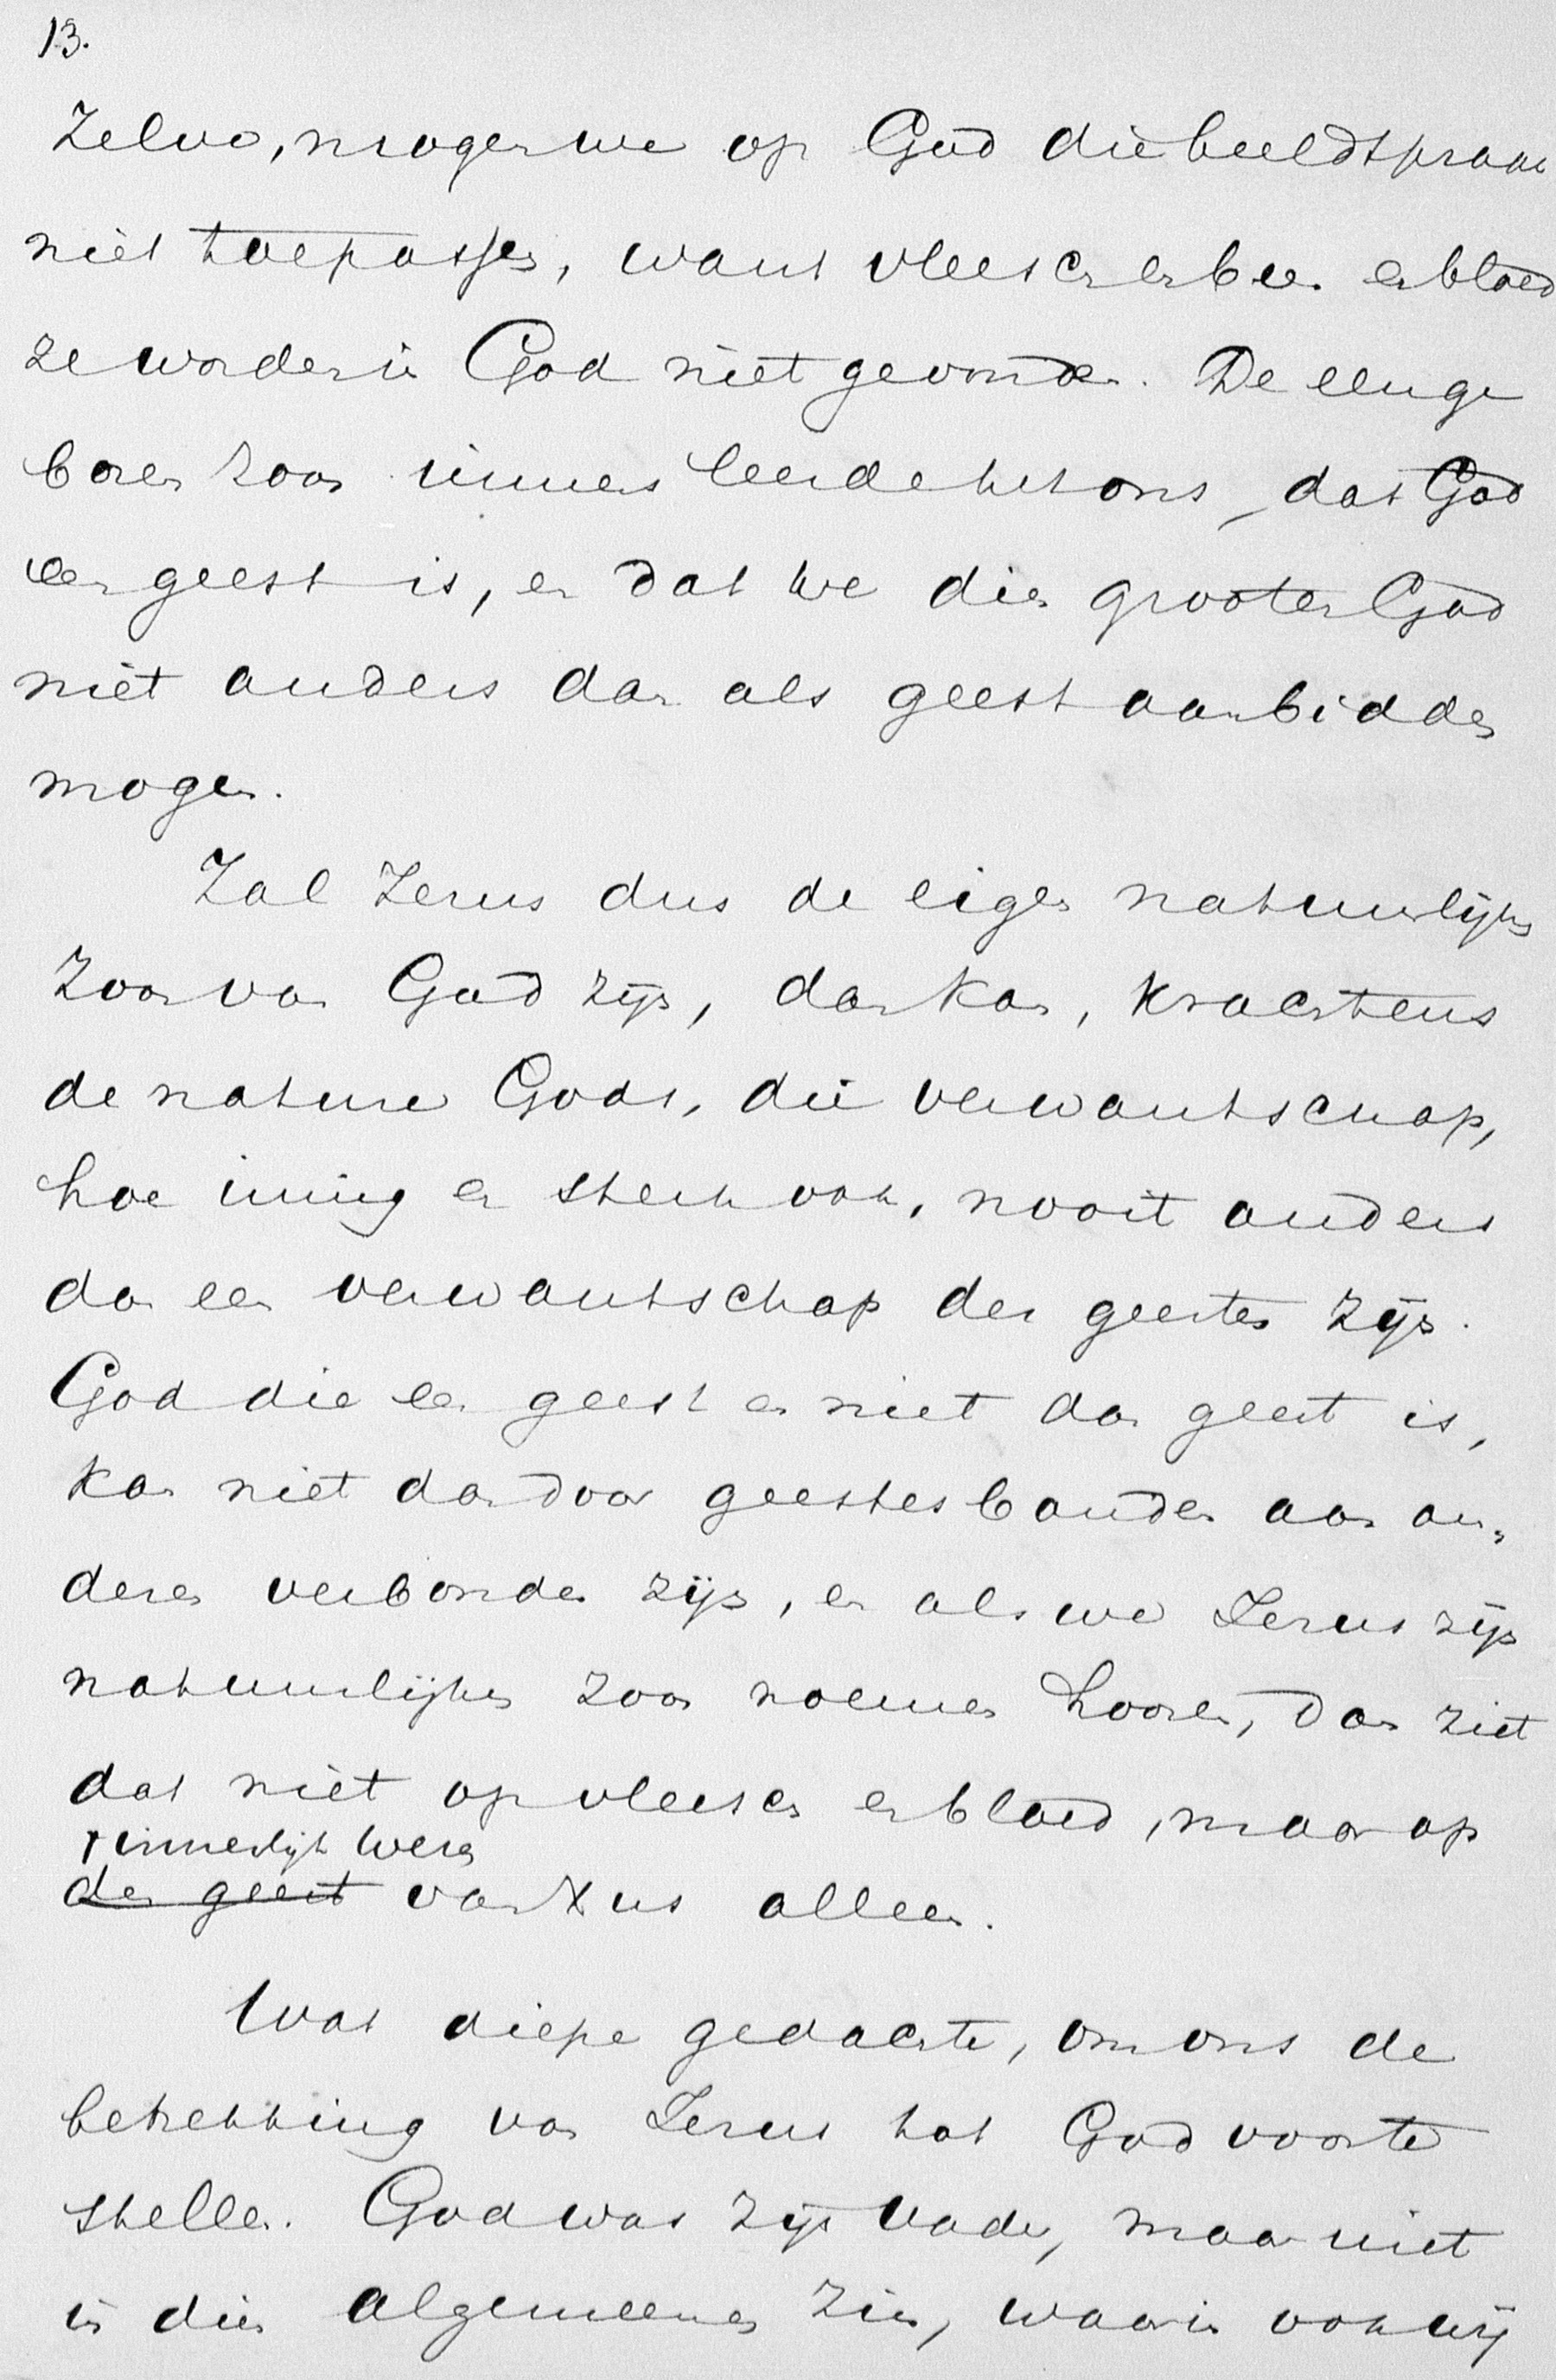 13.
Zelve, mogen we op God die beeldspraak
niet toepassen, want vleesch en been en bloed
ze worden in God niet gevonden. De eenige
boren zoon immers leerde het ons, dat God
een geest is, en dat we dien grooten God
niet anders dan als geest aanbidden
mogen.
Zal Jezus dus de eigen natuurlijke
Zoon van God zijn, dan kan, krachtens
de nature Gods, die verwantschap,
hoe innig en sterk ook, nooit anders
dan een verwantschap des geestes zijn.
God die een geest en niet dan geest is,
kan niet dan door geestesbanden aan an-
deren verbonden zijn, en als we Jezus zijn
natuurlijken zoon noemen hooren, dan ziet
dat niet op vleesch en bloed, maar op
+ innerlijk wezen
den geest van Xus alleen.
Wat diepe gedachte, om ons de
betrekking van Jezus tot God voor te
stellen. God was zijn Vader, maar niet
in dien algemeenen zin, waarin ook wij